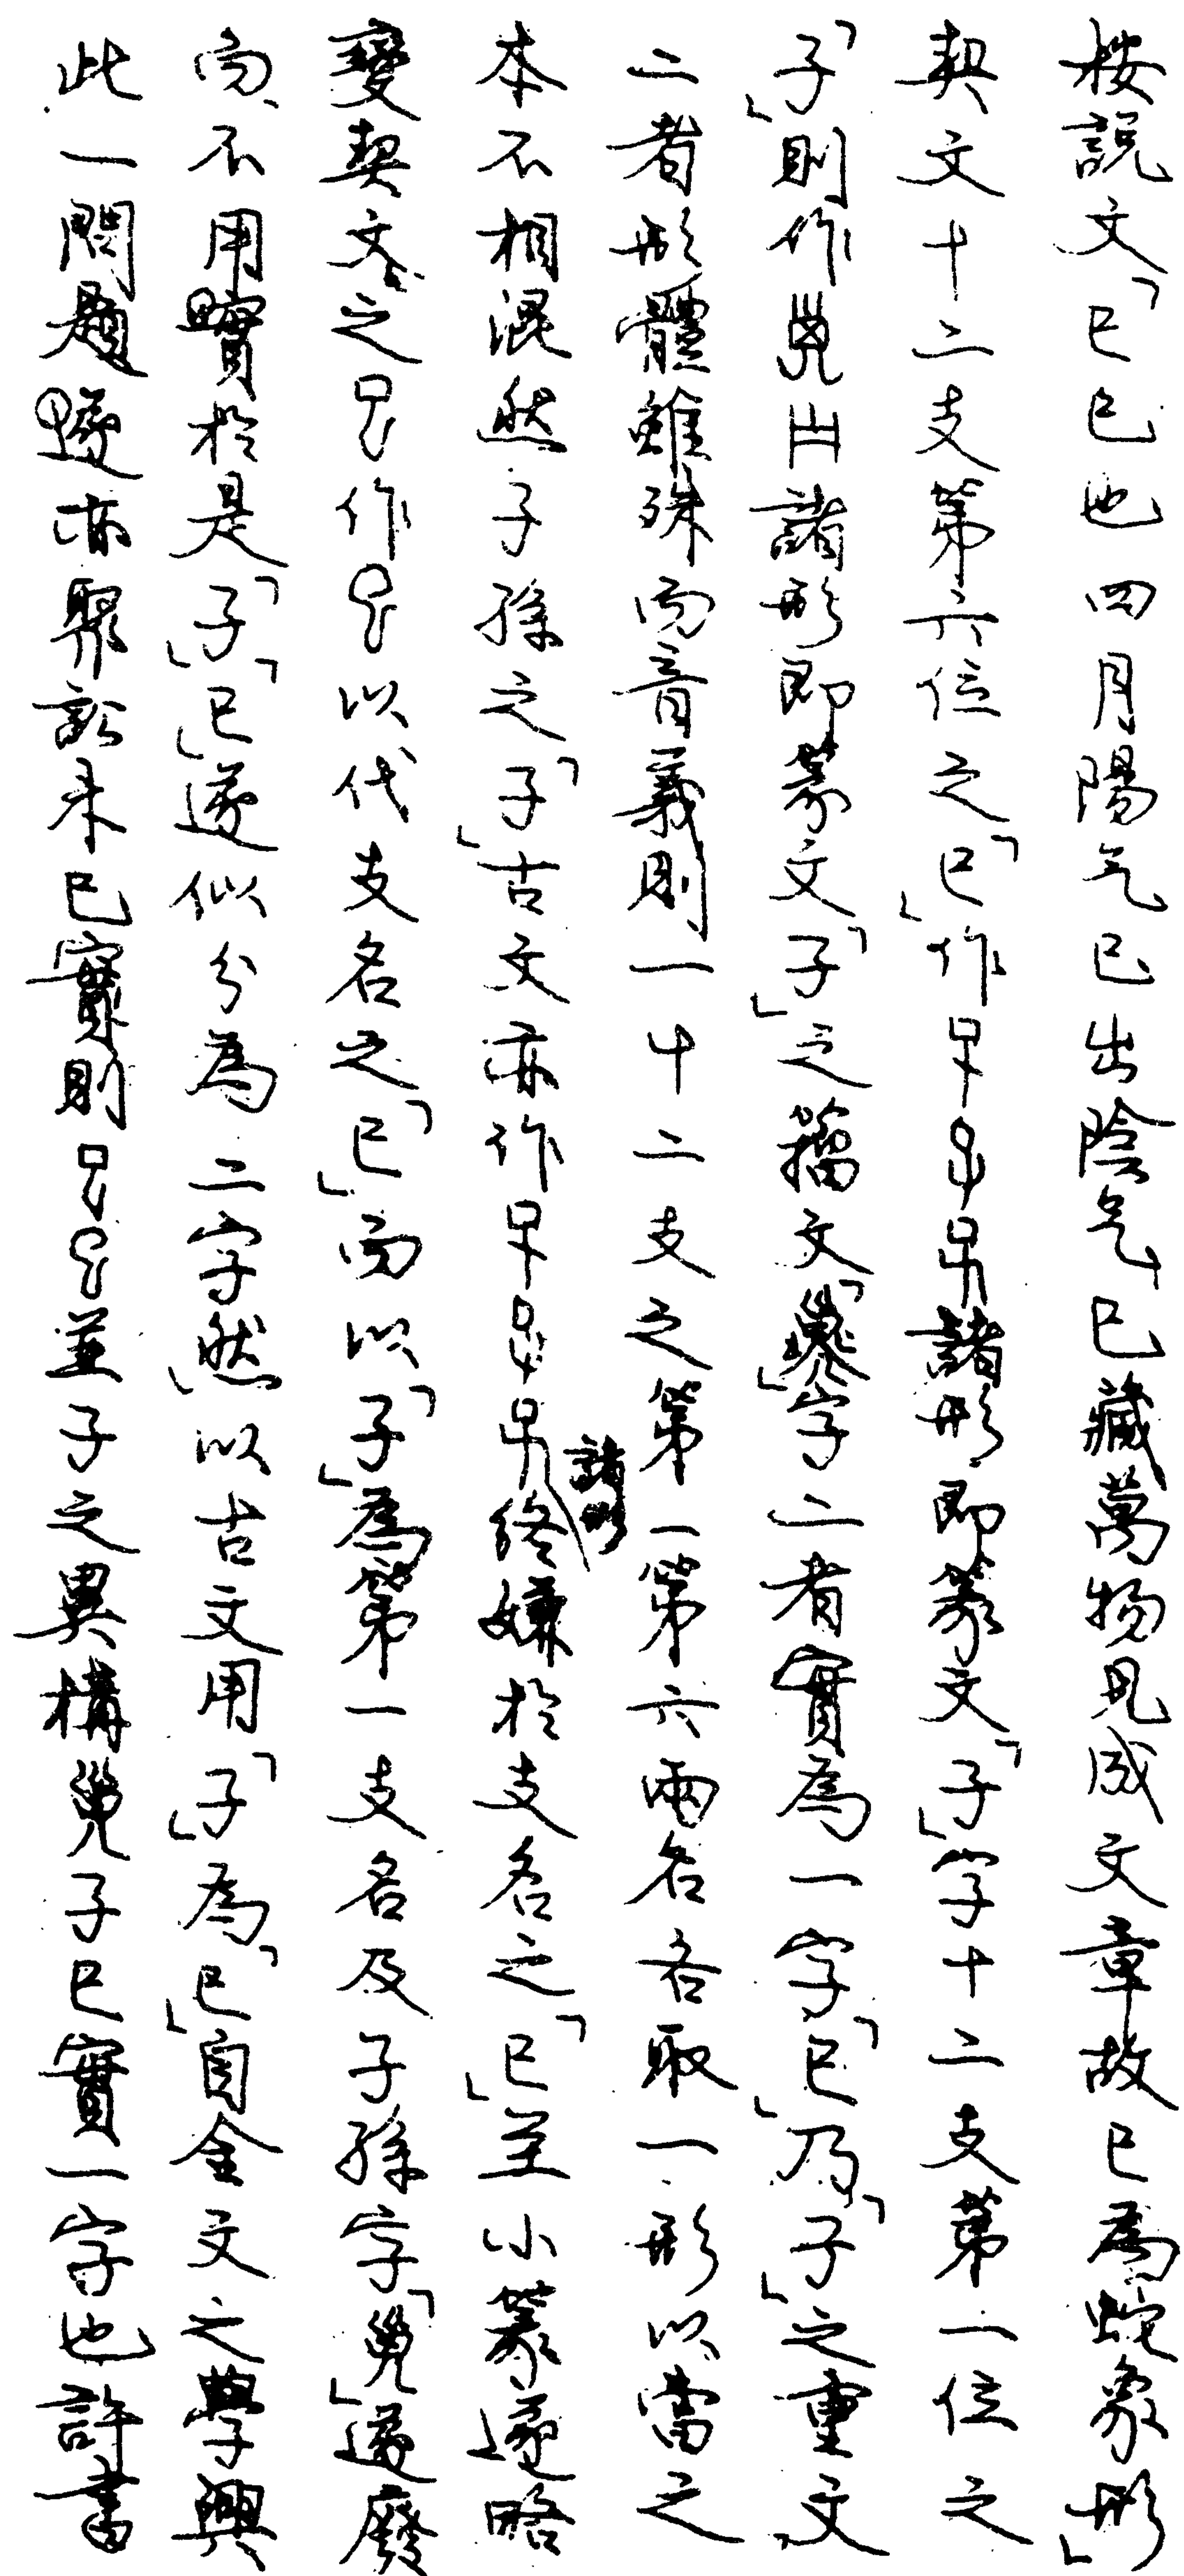 按說文「巳巳也四月陽气巳出陰气巳藏萬物見成文章故巳為蛇象形」
契文十二支第六位之「巳」作諸形即篆文「子」字十二支第一位之
「子」則作諸形即篆文「子」之籀文「㜽」字二者實為一字「巳」乃「子」之重文
二者形體雖殊而音義則一十二支之第一第六兩名各取一形以當之
本不相混然子孫之「子」古文亦作諸形終嫌於支名之「巳」至小篆遂略
變契文之作以代支名之「巳」而以「子」為第一支名及子孫字「㜽」遂廢
而不用實於是「子」「巳」遂似分為二字然以古文用「子」為「巳」自金文之學興
此一問題遂亦聚訟未已實則並子之異構㜽子巳實一字也許書